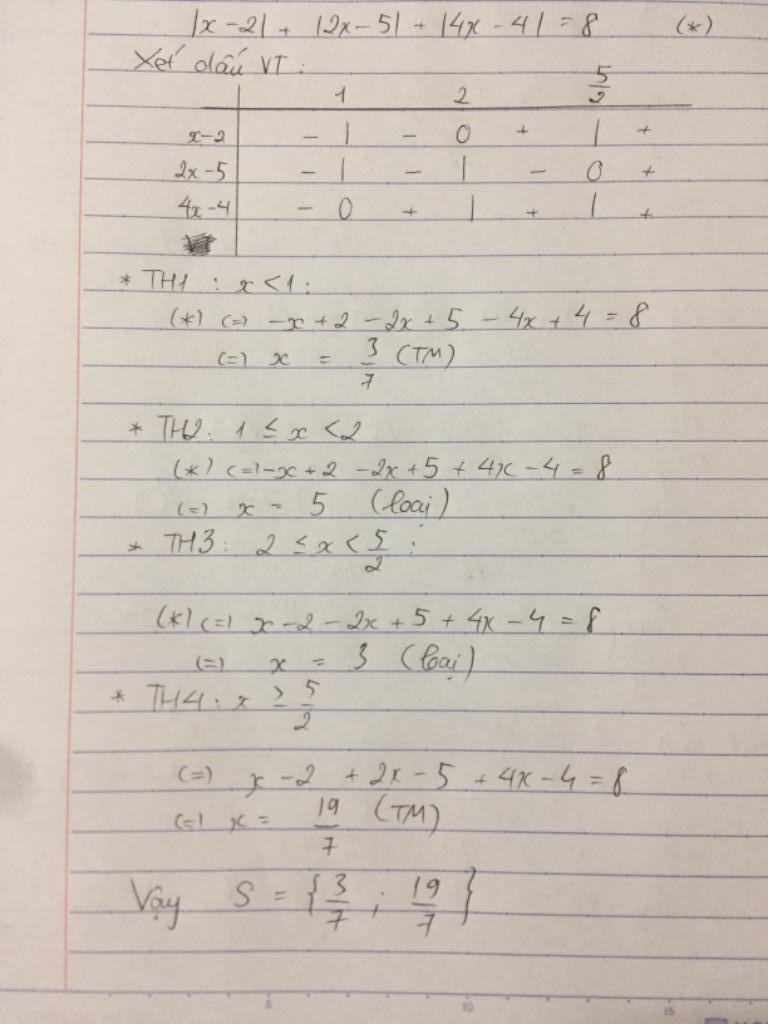 |x-2| + |2x-5| + |4x-4| = 8 (*)
Xét dấu VT:
1 2 5/2
x-2 - | - 0 + | +
2x-5 - | - | - 0 +
4x-4 - 0 + | + | +
* TH1 : x < 1 :
(*) (=) -x + 2 - 2x + 5 - 4x + 4 = 8
(=) x = 3/7 (TM)
* TH2: 1 ≤ x < 2
(*) (=) -x + 2 - 2x + 5 + 4x - 4 = 8
(=) x = 5 (loại)
* TH3: 2 ≤ x < 5/2 :
(*) (=) x - 2 - 2x + 5 + 4x - 4 = 8
(=) x = 3 (loại)
* TH4: x ≥ 5/2
(=) x - 2 + 2x - 5 + 4x - 4 = 8
(=) x = 19/7 (TM)
Vậy S = {3/7 ; 19/7}
5 10 15